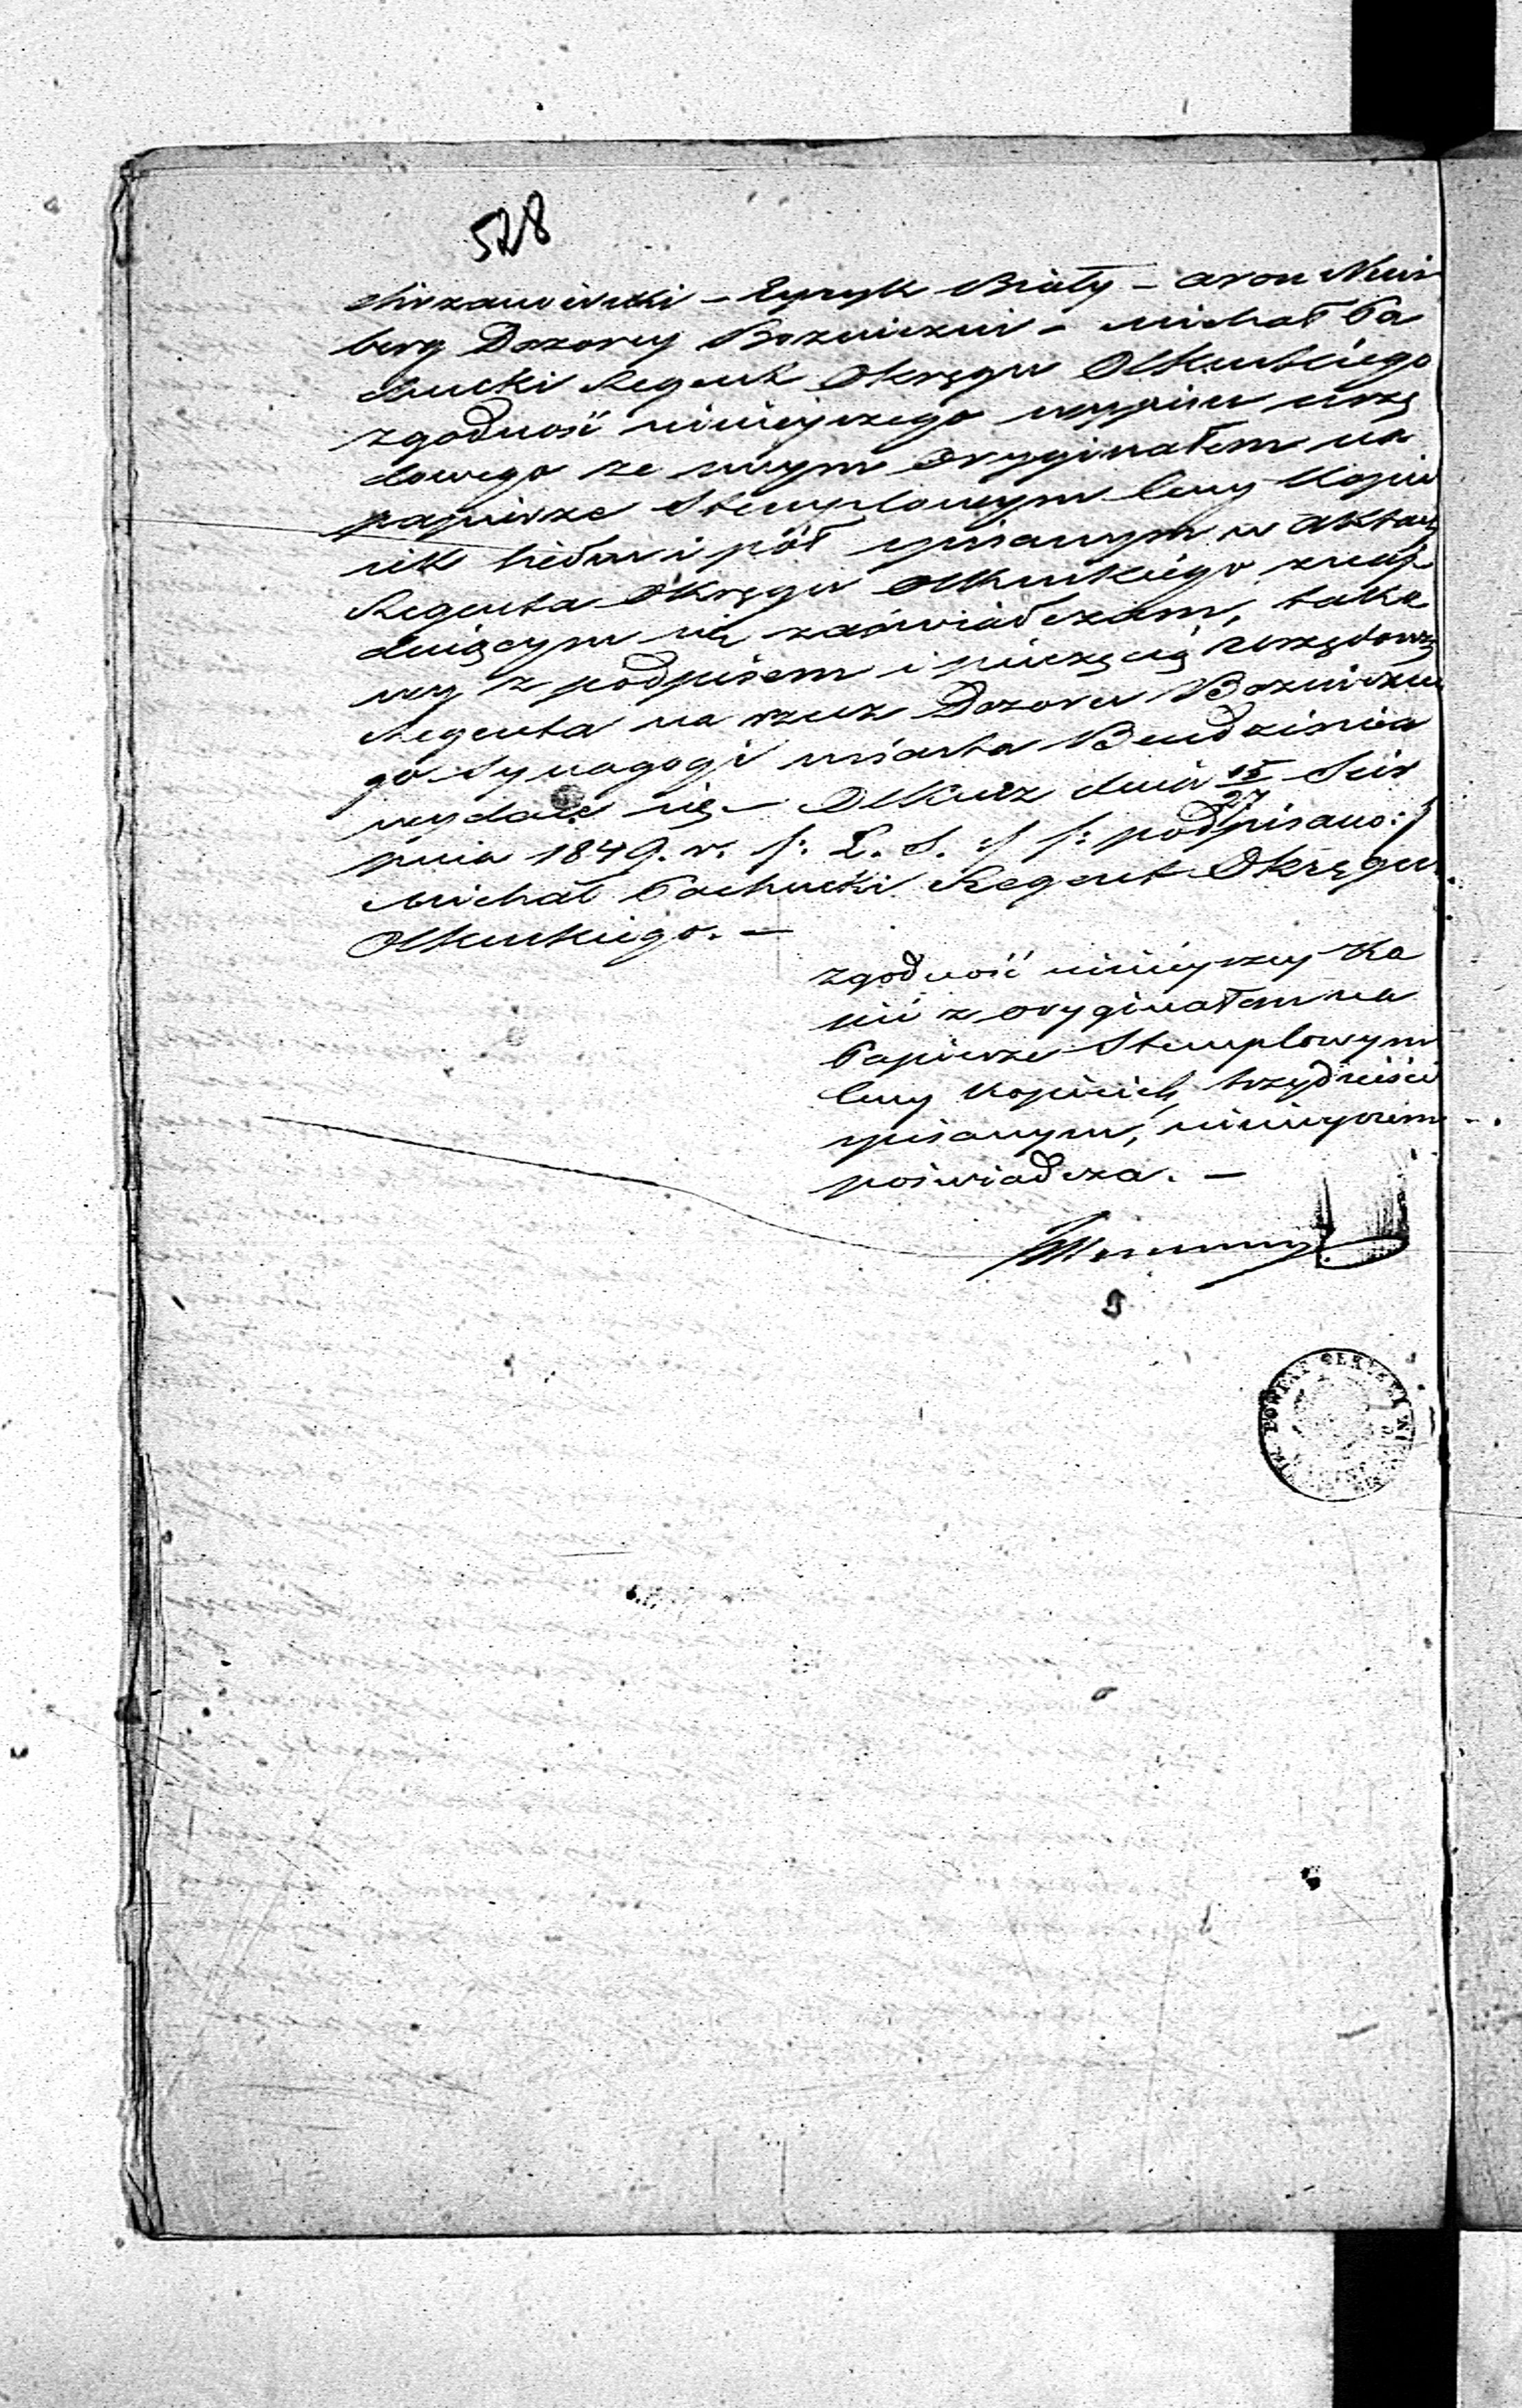 528
Chrzanowski – Eyzyk Biały – Aron Neir
berg Dozorcy Bozniczni – Michał Pa
chucki Regent Okręgu Olkuskiego
zgodność ninieyszego wypisu urzę
dowego ze swym Oryginałem na
papierze Stemplowym Ceny Kopie
iek siedm i pół spisanym w aktach
Regenta Okręgu Olkuskiego znay
duiącym się zaświadczam, takż
wy z podpisem i pieczęcią urzędową
Regenta na rzecz Dozoru Boznicze
go Synagogi miasta Bendzinia
wydaie się – Olkusz dnia 15/27 Sier
pnia 1849. r. /: L. S. :/ /: podpisano:/
Michał Pachucki Regent Okręgu
Olkuskiego. –
Zgodność ninieyszey Ko
pii z oryginałem na
Papierze Stemplowym
Ceny Kopieiek trzydzieści
spisanym, ninieyszem
poświadcza. –
POWIAT OLKUSKI